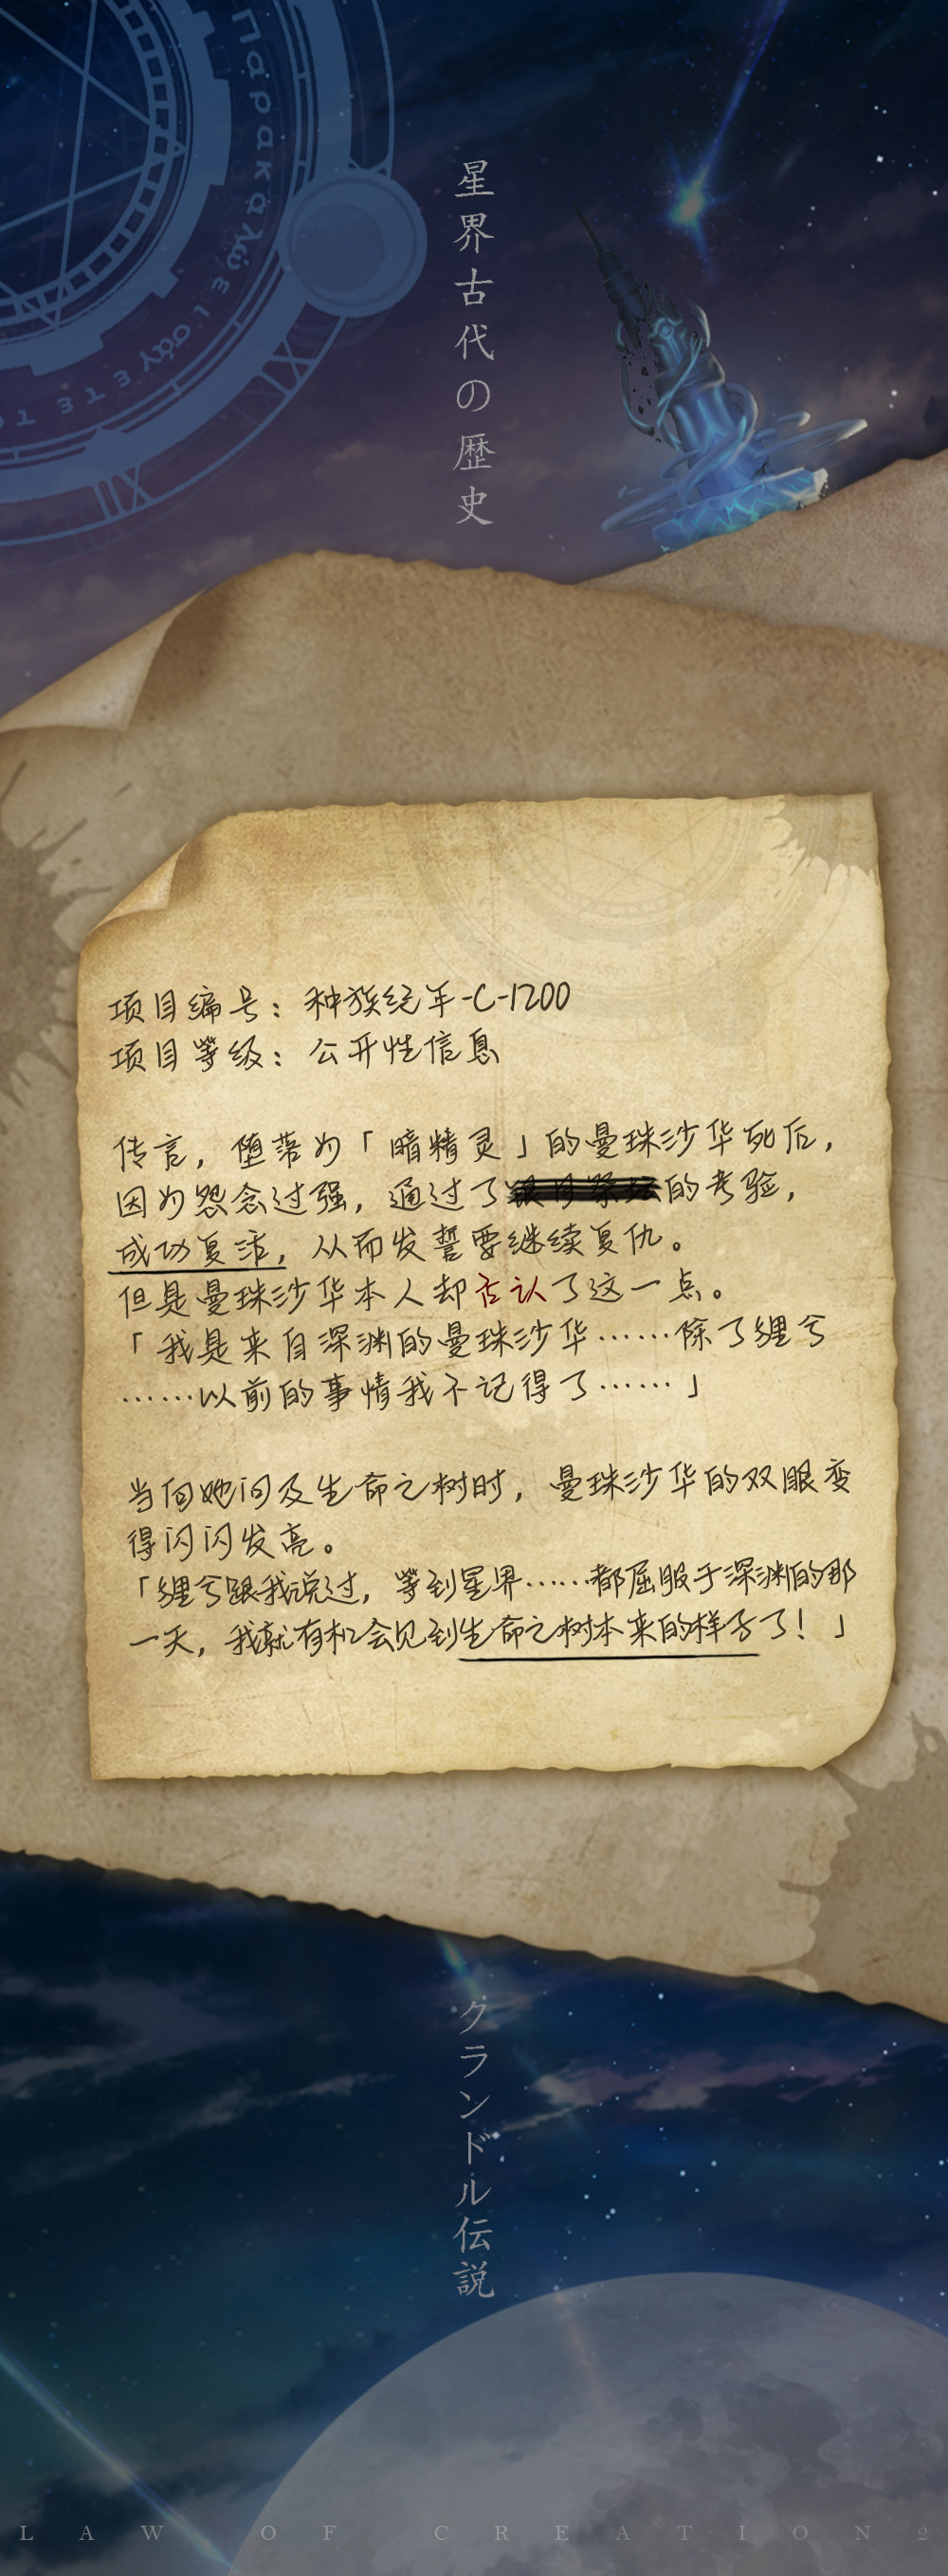 Παρακαλώ εισάγετε το
星界古代の歴史
项目编号：种族纪年-C-1200
项目等级：公开性信息
传言，堕落为「暗精灵」的曼珠沙华死后，
因为怨念过强，通过了的考验，
成功复活，从而发誓要继续复仇。
但是曼珠沙华本人却否认了这一点。
「我是来自深渊的曼珠沙华……除了缠兮
……以前的事情我不记得了……」
当向她问及生命之树时，曼珠沙华的双眼变
得闪闪发亮。
「缠兮跟我说过，等到星界……都屈服于深渊的那
一天，我就有机会见到生命之树本来的样子了！」
クランドル伝説
LAW OF CREATION2